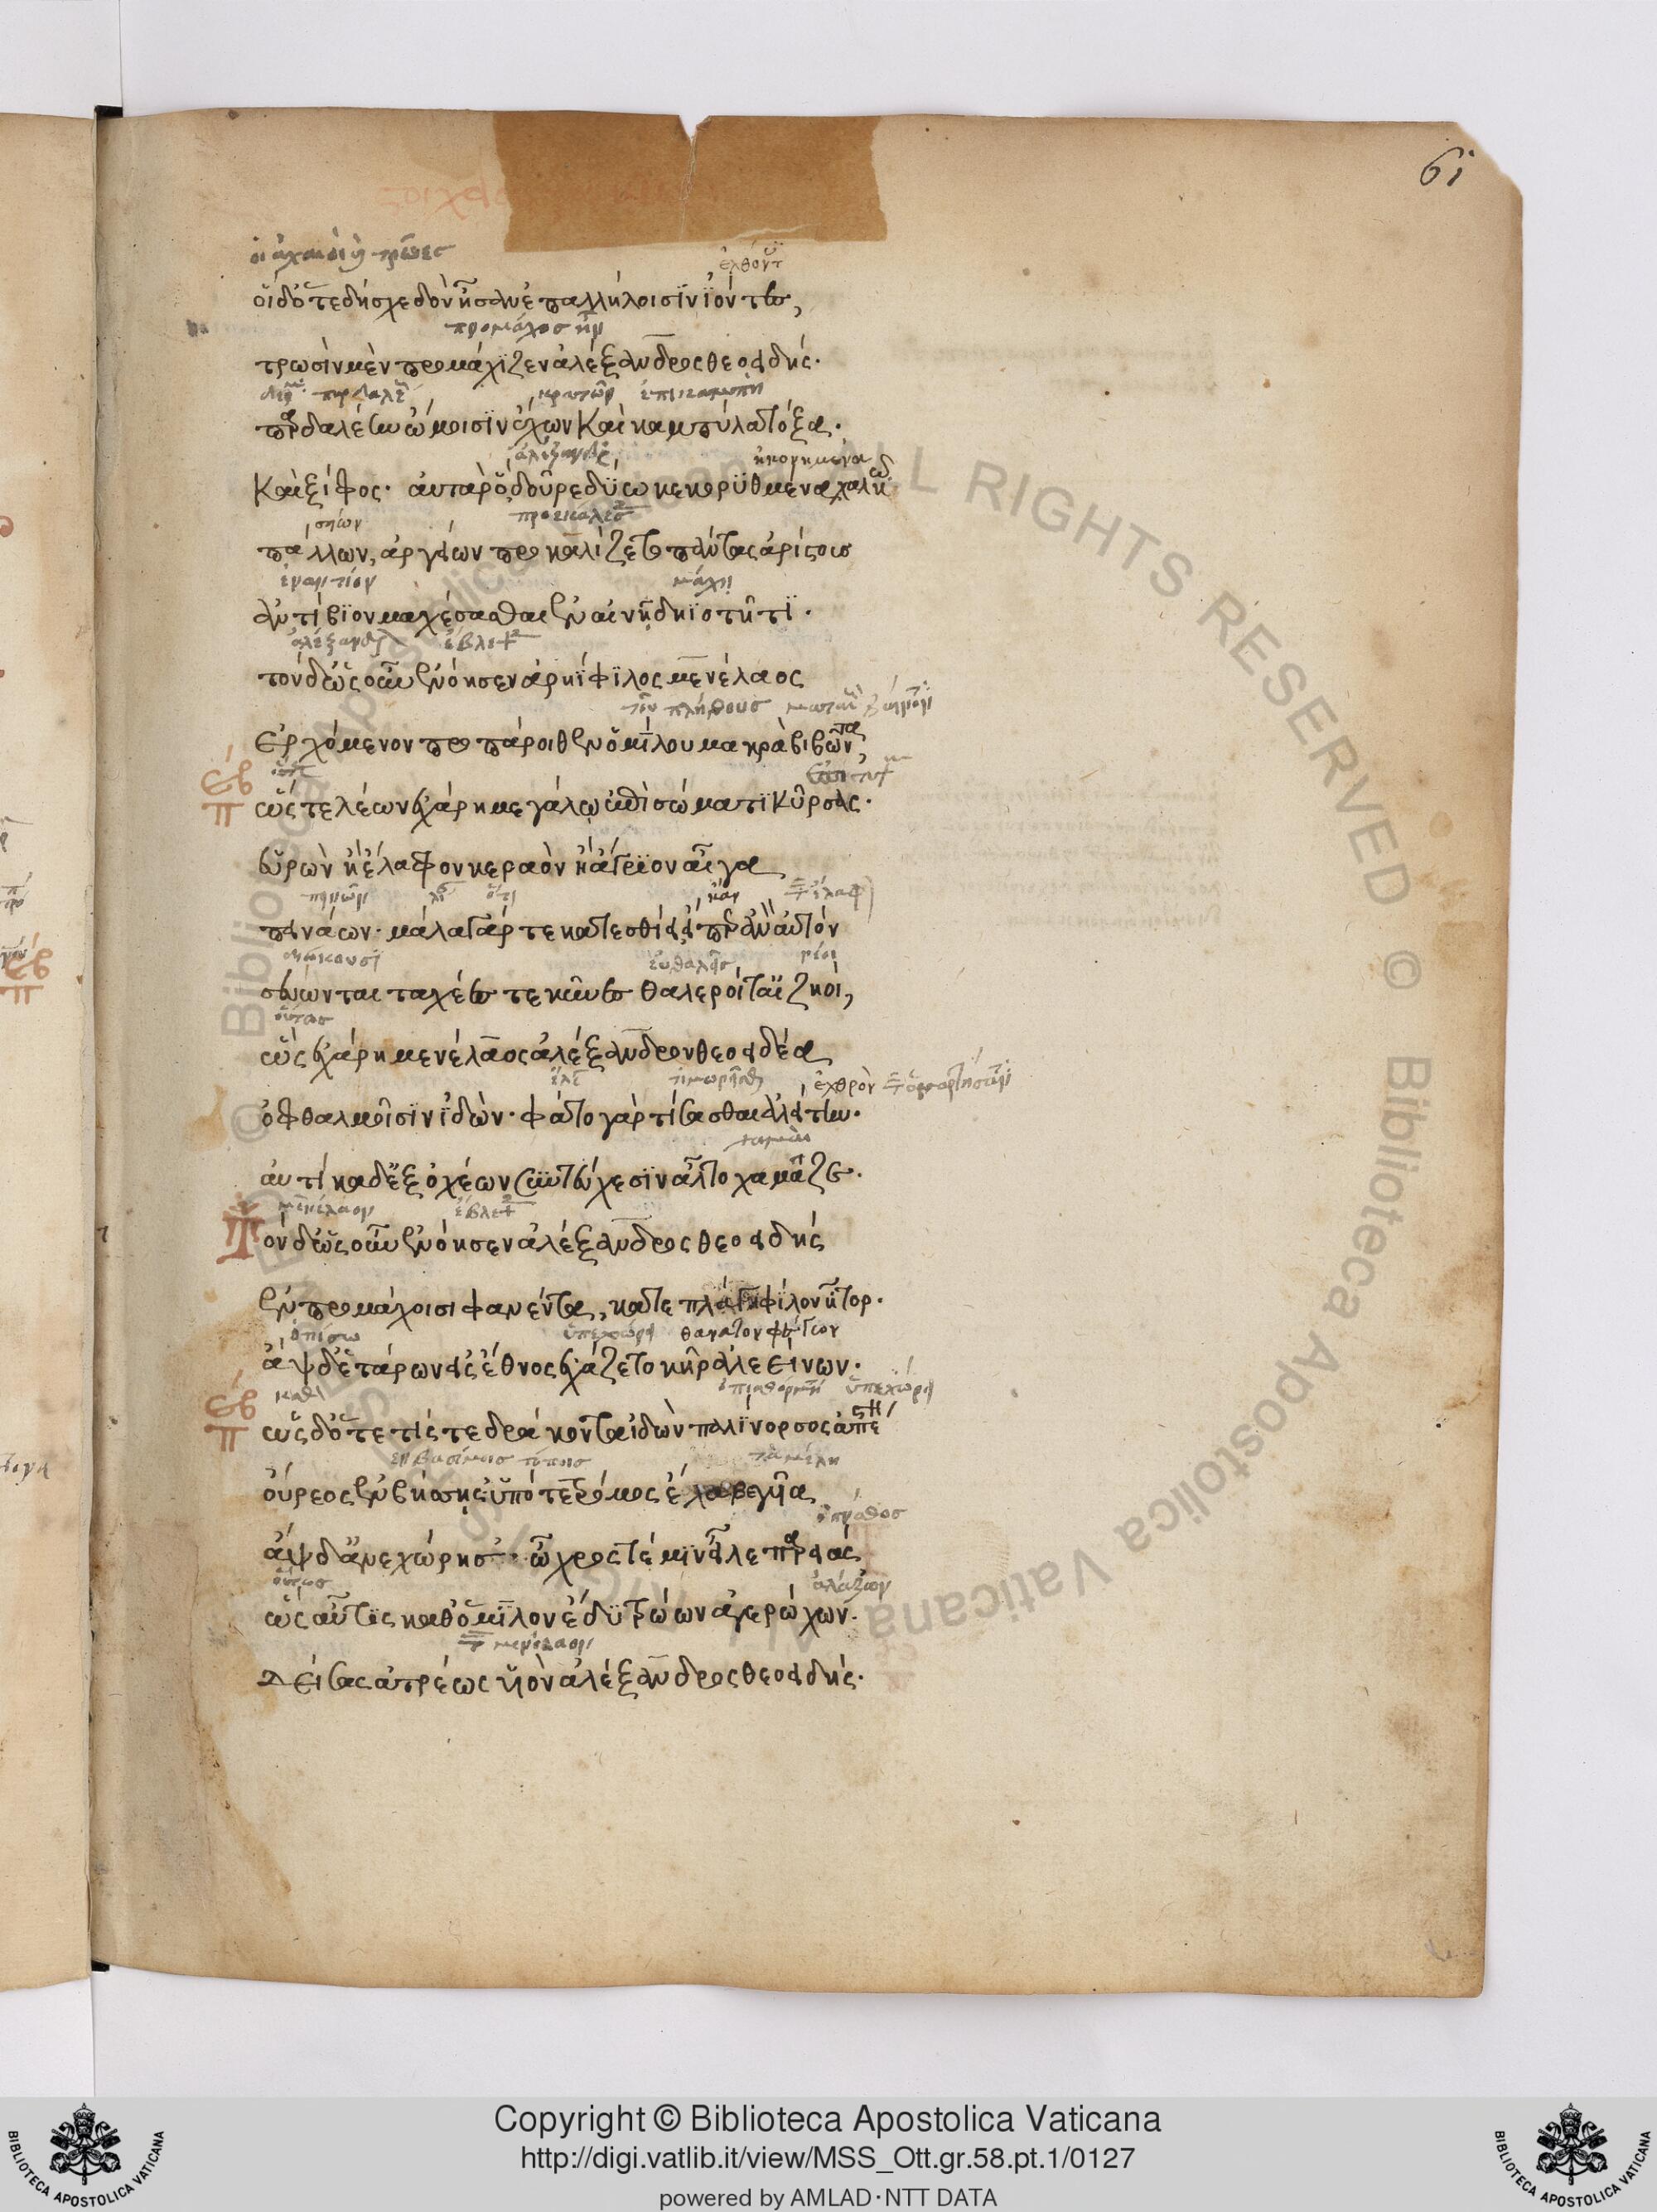 61
οἱ ἀχαιοὶ καὶ τρῶες
οἱ δ' ὅτε δὴ σχεδὸν ἦσαν ἐπαλλήλοισιν ἰόντες,
προμάχος ἦν
τρωσὶν μὲν προμάχιζεν ἀλέξανδρος θεοειδής·
παρδαλέην ὤμοισιν ἔχων καὶ καμπύλα τόξα·
καὶ ξίφος· αὐτὰρ ὃ δοῦρε δύω κεκορυθμένα χαλκῶ
σείων
πάλλων, ἀργείων προκαλίζετο πάντας ἀρίστους
ἐναντίον μάχη
ἀντίβιον μαχέσασθαι ἐν αἰνῇ δηϊοτῆτι·
τὸν δ' ὡς οὖν ἐνόησεν ἀρηΐφιλος μενέλαος
τοῦ πλήθους
ἐρχόμενον προπάροιθεν ὁμίλου μακρὰ βιβῶντα
ὥς τε λέων ἐχάρη μεγάλῳ ἐπὶ σώματι κύρσας·
εὑρὼν ἢ ἔλαφον κεραὸν ἢ ἄγριον αἶγα
πεινῶν ὅτι κἂν
πεινάων· μάλα γάρ τε κατεσθίει εἴπερ ἂν αὐτὸν
διώκουσι νέοι
σεύωνται ταχέες τε κύνες θαλεροί τ' αἰζηοί,
οὕτως
ὣς ἐχάρη μενέλαος ἀλέξανδρον θεοειδέα
ἐχθρὸν
ὀφθαλμοῖσιν ἰδών· φάτο γὰρ τίσεσθαι ἀλείτην·
αὐτίκα δ' ἐξ ὀχέων σὺν τεύχεσιν ἆλτο χαμᾶζε·
μενέλαον
τὸν δ' ὡς οὖν ἐνόησεν ἀλέξανδρος θεοειδής
ἐν προμάχοισι φανέντα, κατεπλάγη φίλον ἦτορ·
ὀπίσω ὑπεχώρει θάνατον φεύγων
ἂψ δ' ἑτάρων εἰς ἔθνος ἐχάζετο κῆρ' ἀλεείνων·
ὡς δ' ὅτε τίς τε δράκοντα ἰδὼν παλίνορσος ἀπέστη
ἐν βασίμοις τόποις τὰ μέλη
οὔρεος ἐν βήσσῃς ὑπό τε τρόμος ἔλλαβε γυῖα
ἂψ δ' ἀνεχώρησεν· ὦχρός τέ μιν εἷλε παρειάς
οὕτως ἀλαζόνων
ὣς αὖτις καθ' ὅμιλον ἔδυ τρώων ἀγερώχων·
μενέλαον
δείσας ἀτρέως υἱὸν ἀλέξανδρος θεοειδής·
© Biblioteca Apostolica Vaticana ALL RIGHTS RESERVED © Biblioteca Apostolica Vaticana
Copyright © Biblioteca Apostolica Vaticana
http://digi.vatlib.it/view/MSS_Ott.gr.58.pt.1/0127
powered by AMLAD·NTT DATA
BIBLIOTECA APOSTOLICA VATICANA
BIBLIOTECA APOSTOLICA VATICANA